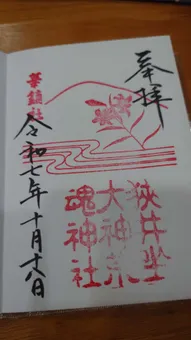 奉拝
狭井坐
大神荒
魂神社
華鎮社
令和七年十月十八日